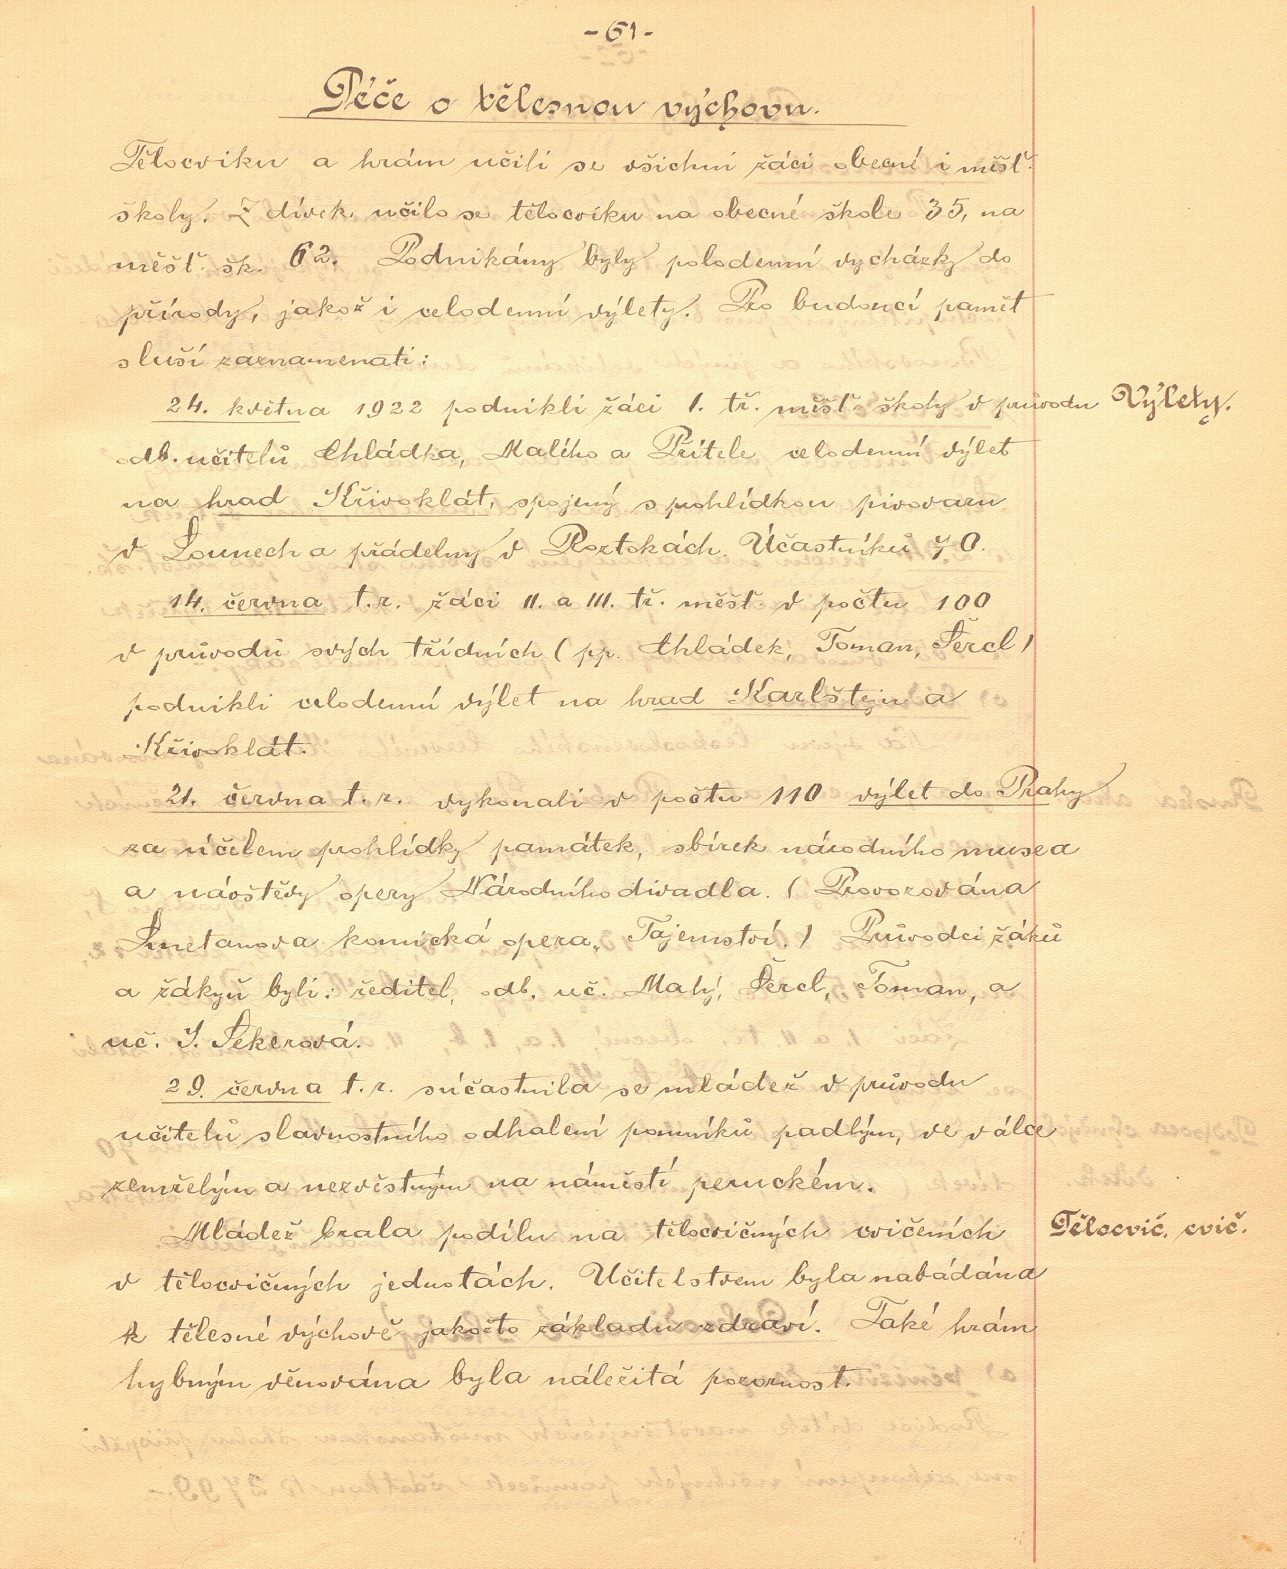 - 61 -
Péče o tělesnou výchovu.
Tělocviku a hrám učili se všichni žáci obecné i měšť.
školy. Z dívek učilo se tělocviku na obecné škole 35, na
měšť. šk. 62. Podnikány byly polodenní vycházky do
přírody, jakož i celodenní výlety. Pro budoucí paměť
sluší zaznamenati:
24. května 1922 podnikli žáci I. tř. měšť. školy v průvodu
Výlety.
odb. učitelů Chládka, Malího a Přítele celodenní výlet
na hrad Křivoklát, spojený s prohlídkou pivovaru
v Lounech a přádelny v Roztokách. Účastníků 70.
14. června t. r. žáci II. a III. tř. měšť. v počtu 100
v průvodu svých třídních (pp. Chládek, Toman, Šercl)
podnikli celodenní výlet na hrad Karlštejn a
Křivoklát.
21. června t. r. vykonali v počtu 110 výlet do Prahy
za účelem prohlídky památek, sbírek národního musea
a návštěvy opery Národního divadla. (Provozována
Smetanova komická opera „Tajemství.) Průvodci žáků
a žákyň byli: ředitel, odb. uč. Malý, Šercl, Toman, a
uč. J. Sekerová.
29. června t. r. súčastnila se mládež v průvodu
učitelů slavnostního odhalení pomníků padlým, ve válce
zemřelým a nezvěstným na náměstí peruckém.
Mládež brala podílu na tělocvičných cvičeních
Tělocvič. cvič.
v tělocvičných jednotách. Učitelstvem byla nabádána
k tělesné výchově jakožto základu zdraví. Také hrám
hybným věnována byla náležitá pozornost.